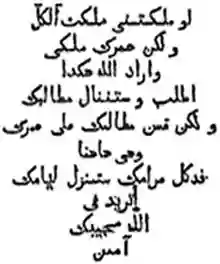 لو ملكتني ملكت الكل
و لكن عمرك ملكي
واراد الله هكذا
اطلب و ستنال مطالبك
و لكن ثمن مطالبك هي عمرك
وهي حاضنا
فدكل مرامك ستنزل ليامك
اتريد في
الله مجيبك
آمين